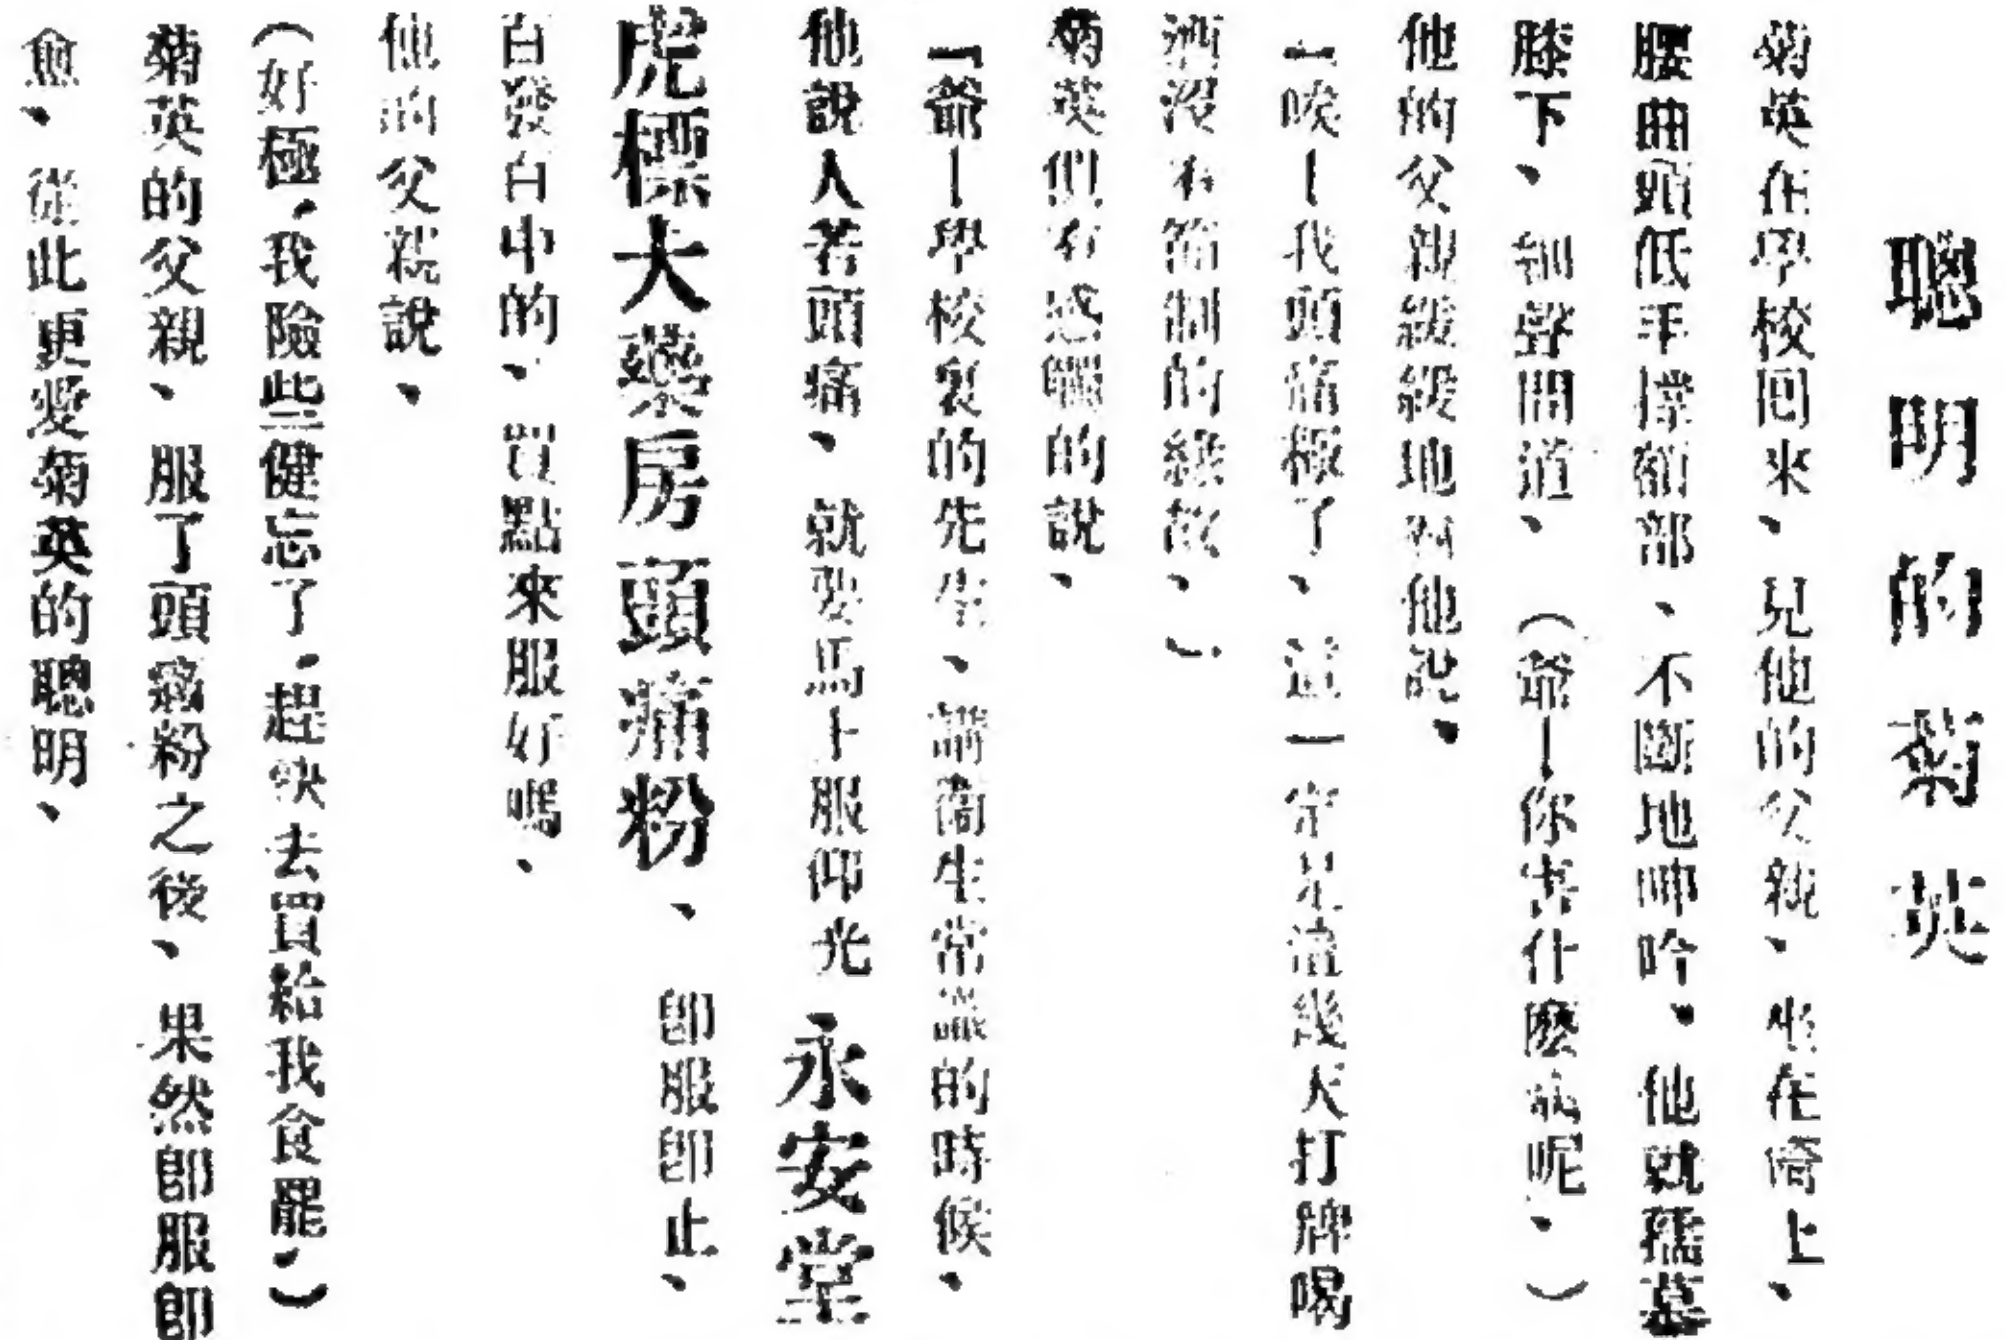 聰明的菊英
菊英在學校回來、見他的父親、坐在椅上、
腰曲頭低手撑額部、不斷地呻吟。他就孺慕
膝下、細聲問道、（爺—你害什麼病呢、）
他的父親緩緩地對他說。
「唉—我頭痛極了、這一定是這幾天打牌喝
酒沒有節制的緣故、」
菊英們有感觸的說、
「爺—學校裏的先生、講衞生常識的時候、
他說人若頭痛、就要馬上服仰光永安堂
虎標大藥房頭痛粉、即服即止、
百發百中的、買點來服好嗎、
他的父親說、
（好極，我險些健忘了，趕快去買給我食罷，）
菊英的父親、服了頭痛粉之後、果然即服即
愈、從此更愛菊英的聰明、